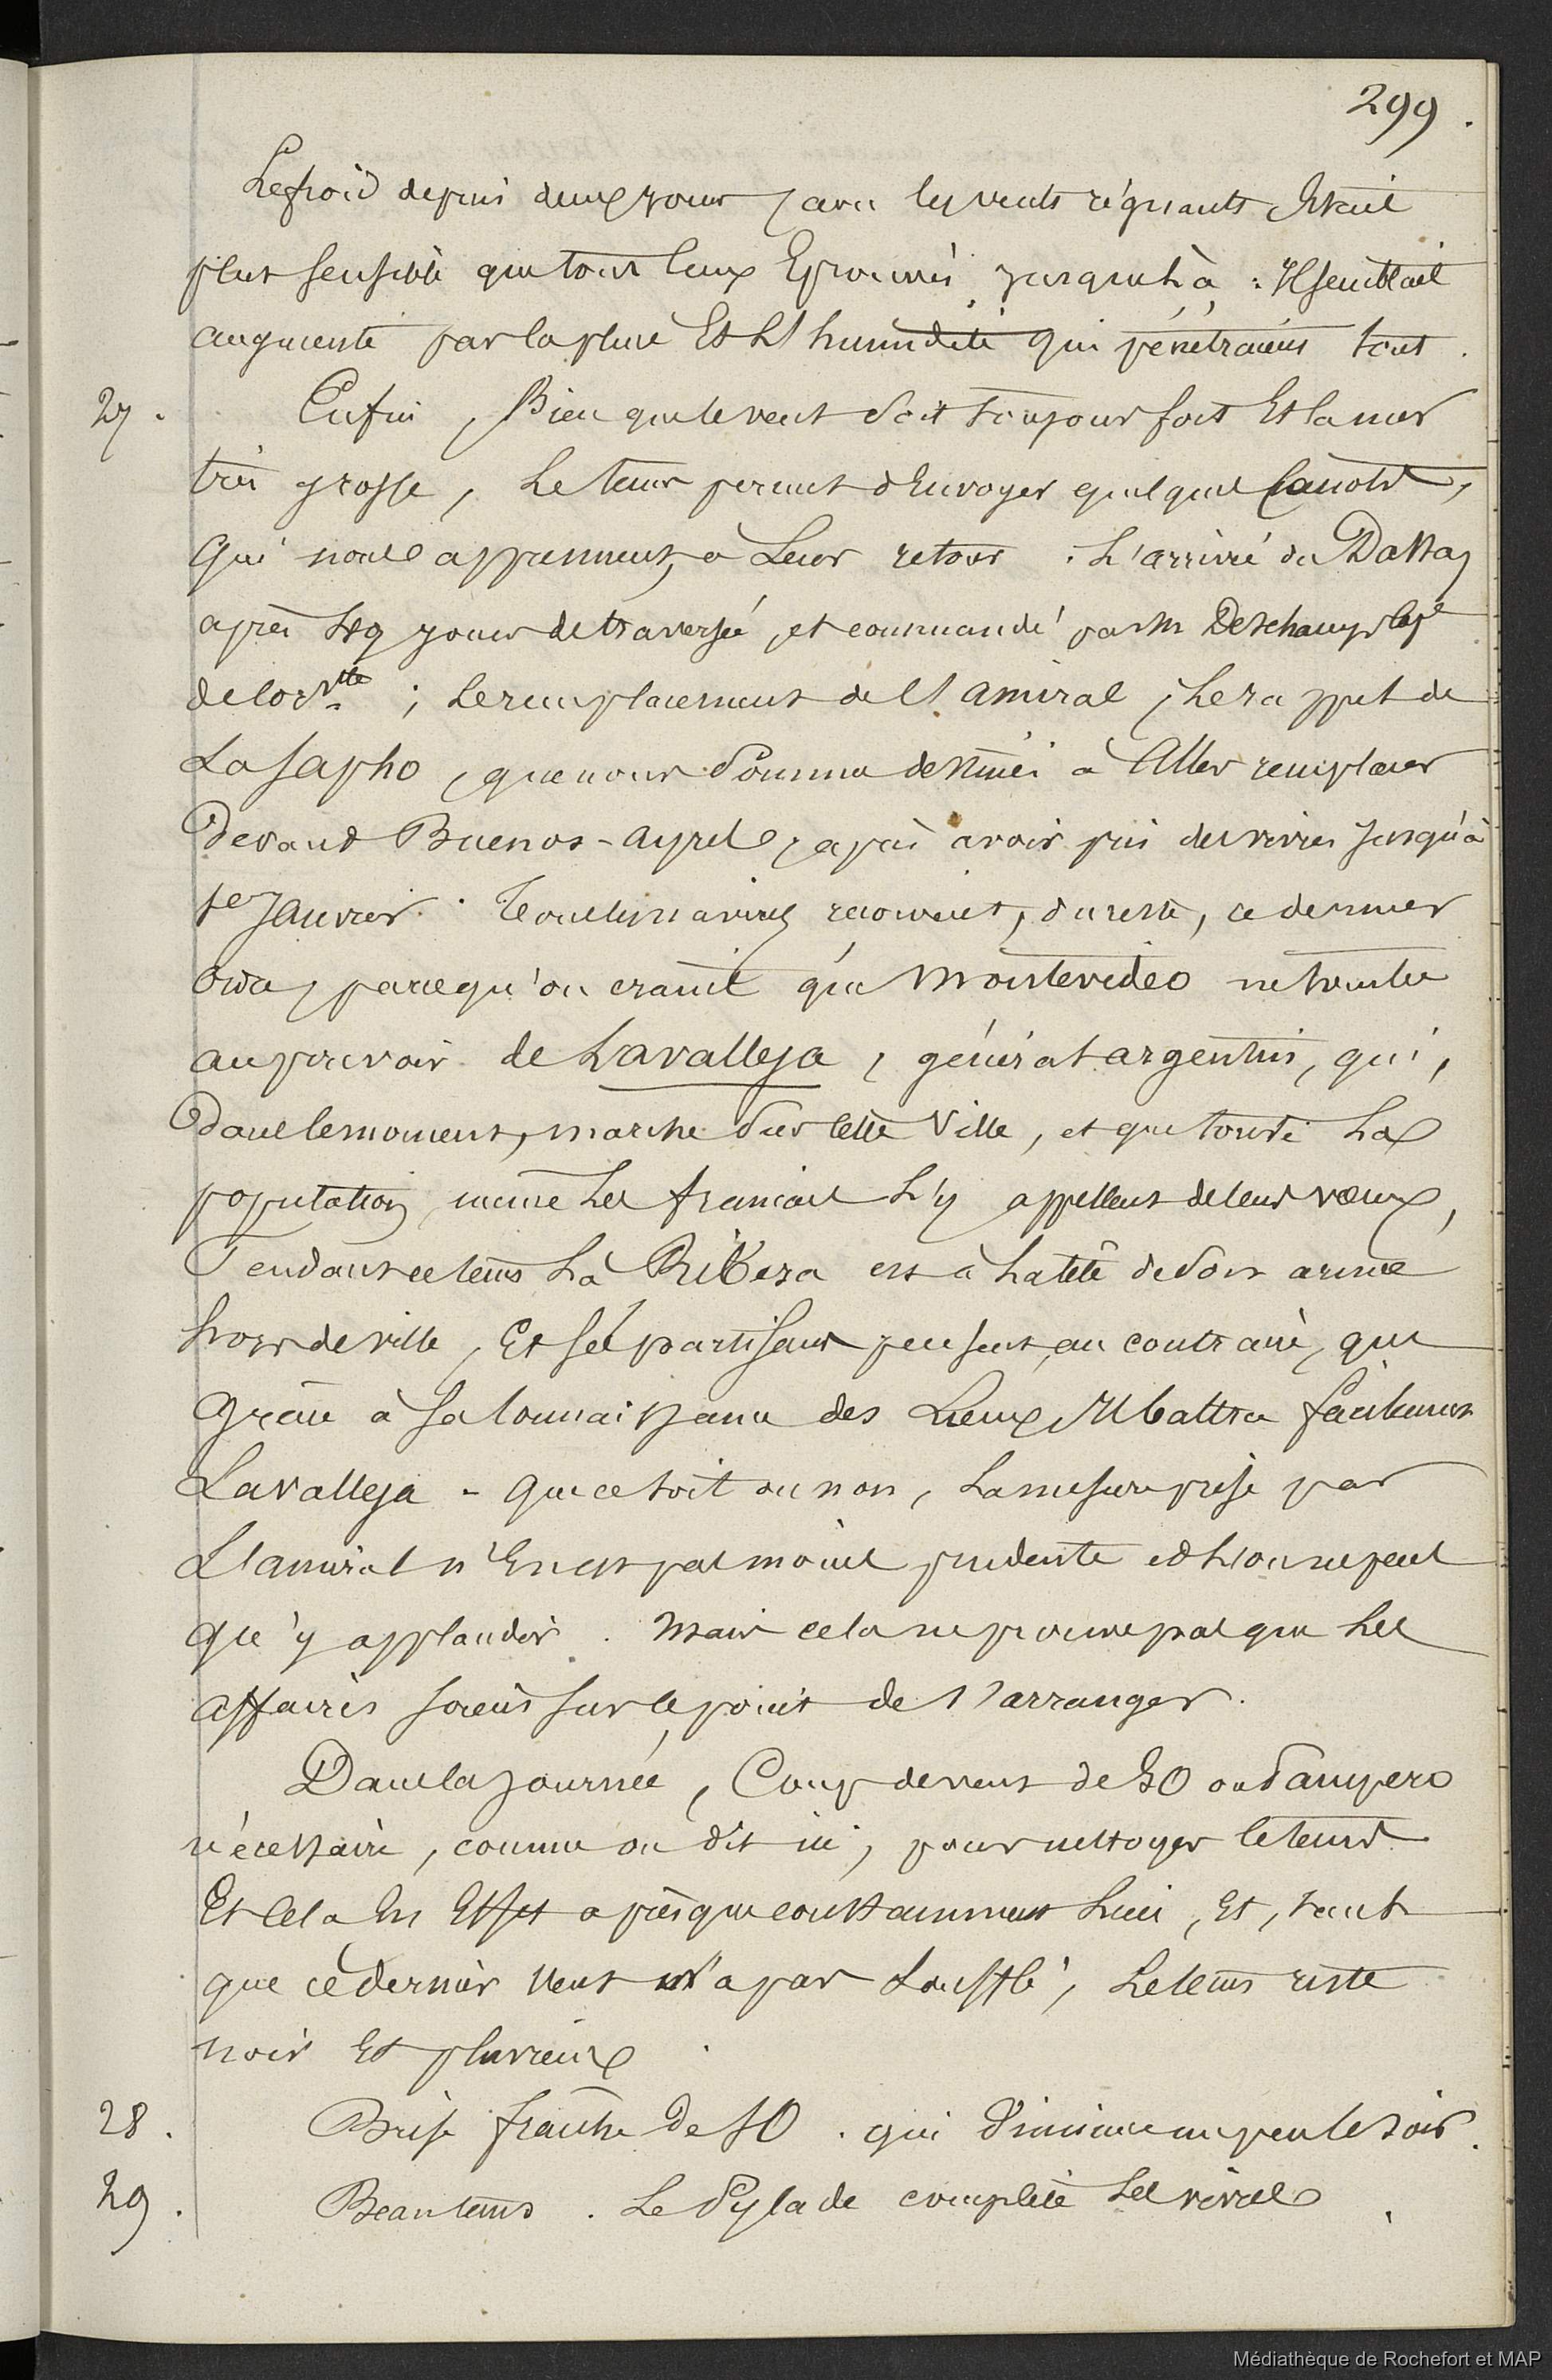 299.
Le froid depuis deux jours, avec les vents régnants était
plus sensible que tous ceux éprouvés jusque là : Il semblait
augmenté par la pluie Et l'humidité qui pénétraient tout.
27. Enfin, Bien que le vent soit toujours fort Et la mer
très grosse, Le tems permet d'Envoyer quelques Canots,
Qui nous apprennent, à Leur retour. L'arrivée du Dassas
après 49 jours de traversée, et commandé par Mr Deschamps Cape
de Corvtte ; Le remplacement de l'amiral, Le rappel de
La Sapho, que nous sommes destinés à Aller remplacer
Devant Buenos-ayres, après avoir pris des vivres jusqu'à
1er Janvier. Tous les navires reçoivent, du reste, ce dernier
ordre, parce qu'on craint que Montevideo ne tombe
au pouvoir de Lavalleja, général argentin, qui,
Dans le moment, marche sur Cette Ville, et que toute La
population, même Les français L'y appellent de leurs vœux,
Pendant ce tems Là Ribera est à La tête de son armée
hors de ville, Et ses partisans pensent, au contraire, que
Grâce à sa Connaissance des Lieux, Il battra facilement
Lavalleja - Que ce soit ou non, La mesure prise par
L'amiral n'En est pas moins prudente et L'on ne peut
qu'y applaudir. Mais cela ne prouve pas que Les
Affaires soient sur le point de s'arranger.
Dans la journée, Coup de vent de SO ou Pampero
nécessaire, comme on dit ici, pour nettoyer le tems
Et Cela En Effet a presque constamment Lieu, Et, tant
que ce dernier Vent n'a pas Soufflé, Le tems reste
noir Et pluvieux.
28. Brise fraîche De SO. qui diminue un peu le soir.
29. Beau tems. Le Pylade complète Les vivres.
Médiathèque de Rochefort et MAP